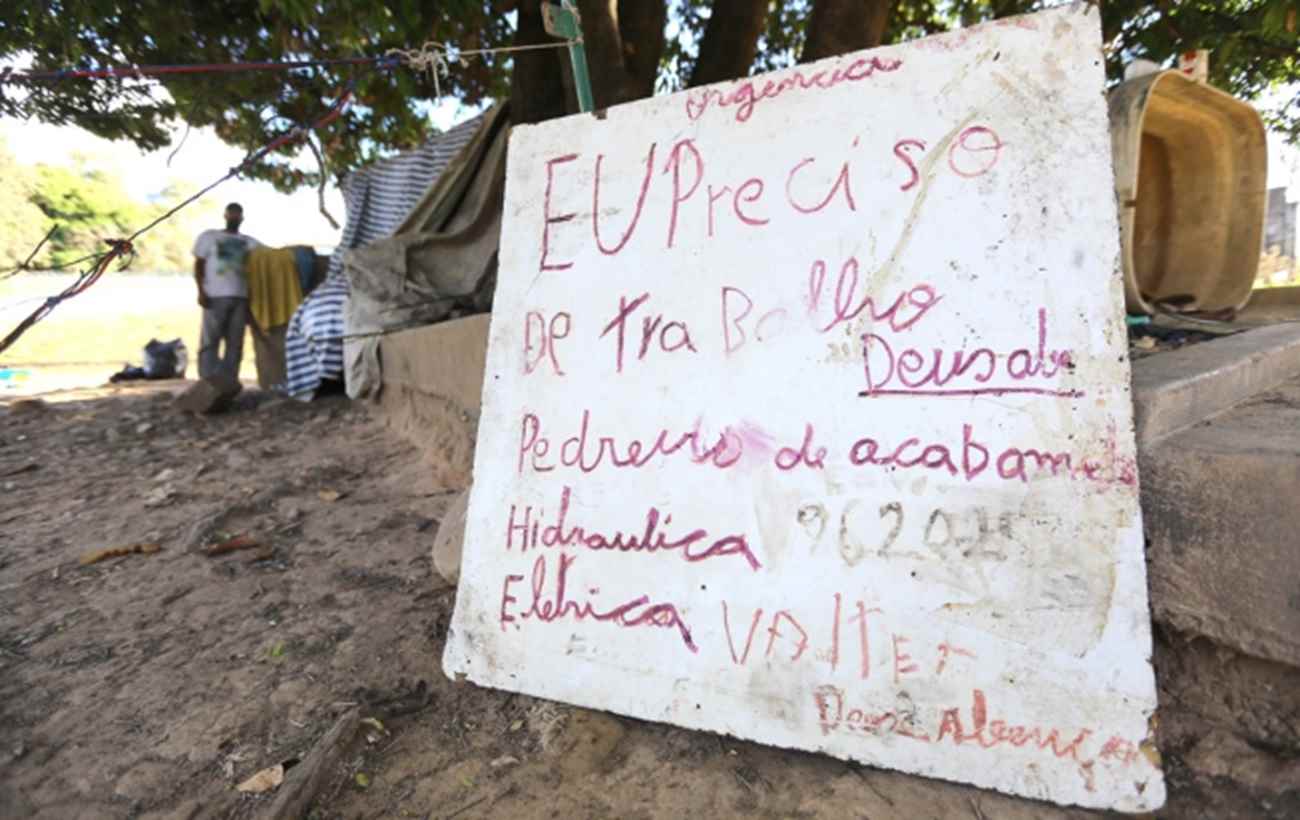 urgencia
EU Preciso
De traBalho
Deus abe
Pedreiro de acabam
Hidraulica 9620
Eletrica VAlter
Deus Abençoa